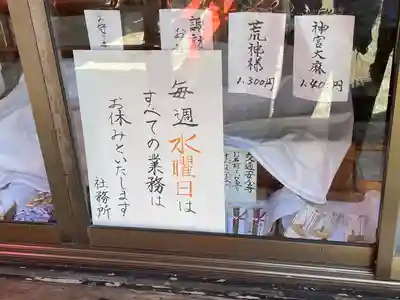 毎週水曜日は
すべての業務は
お休みといたします
社務所
神宮大麻
1.400円
荒神様
1.300円
諏訪